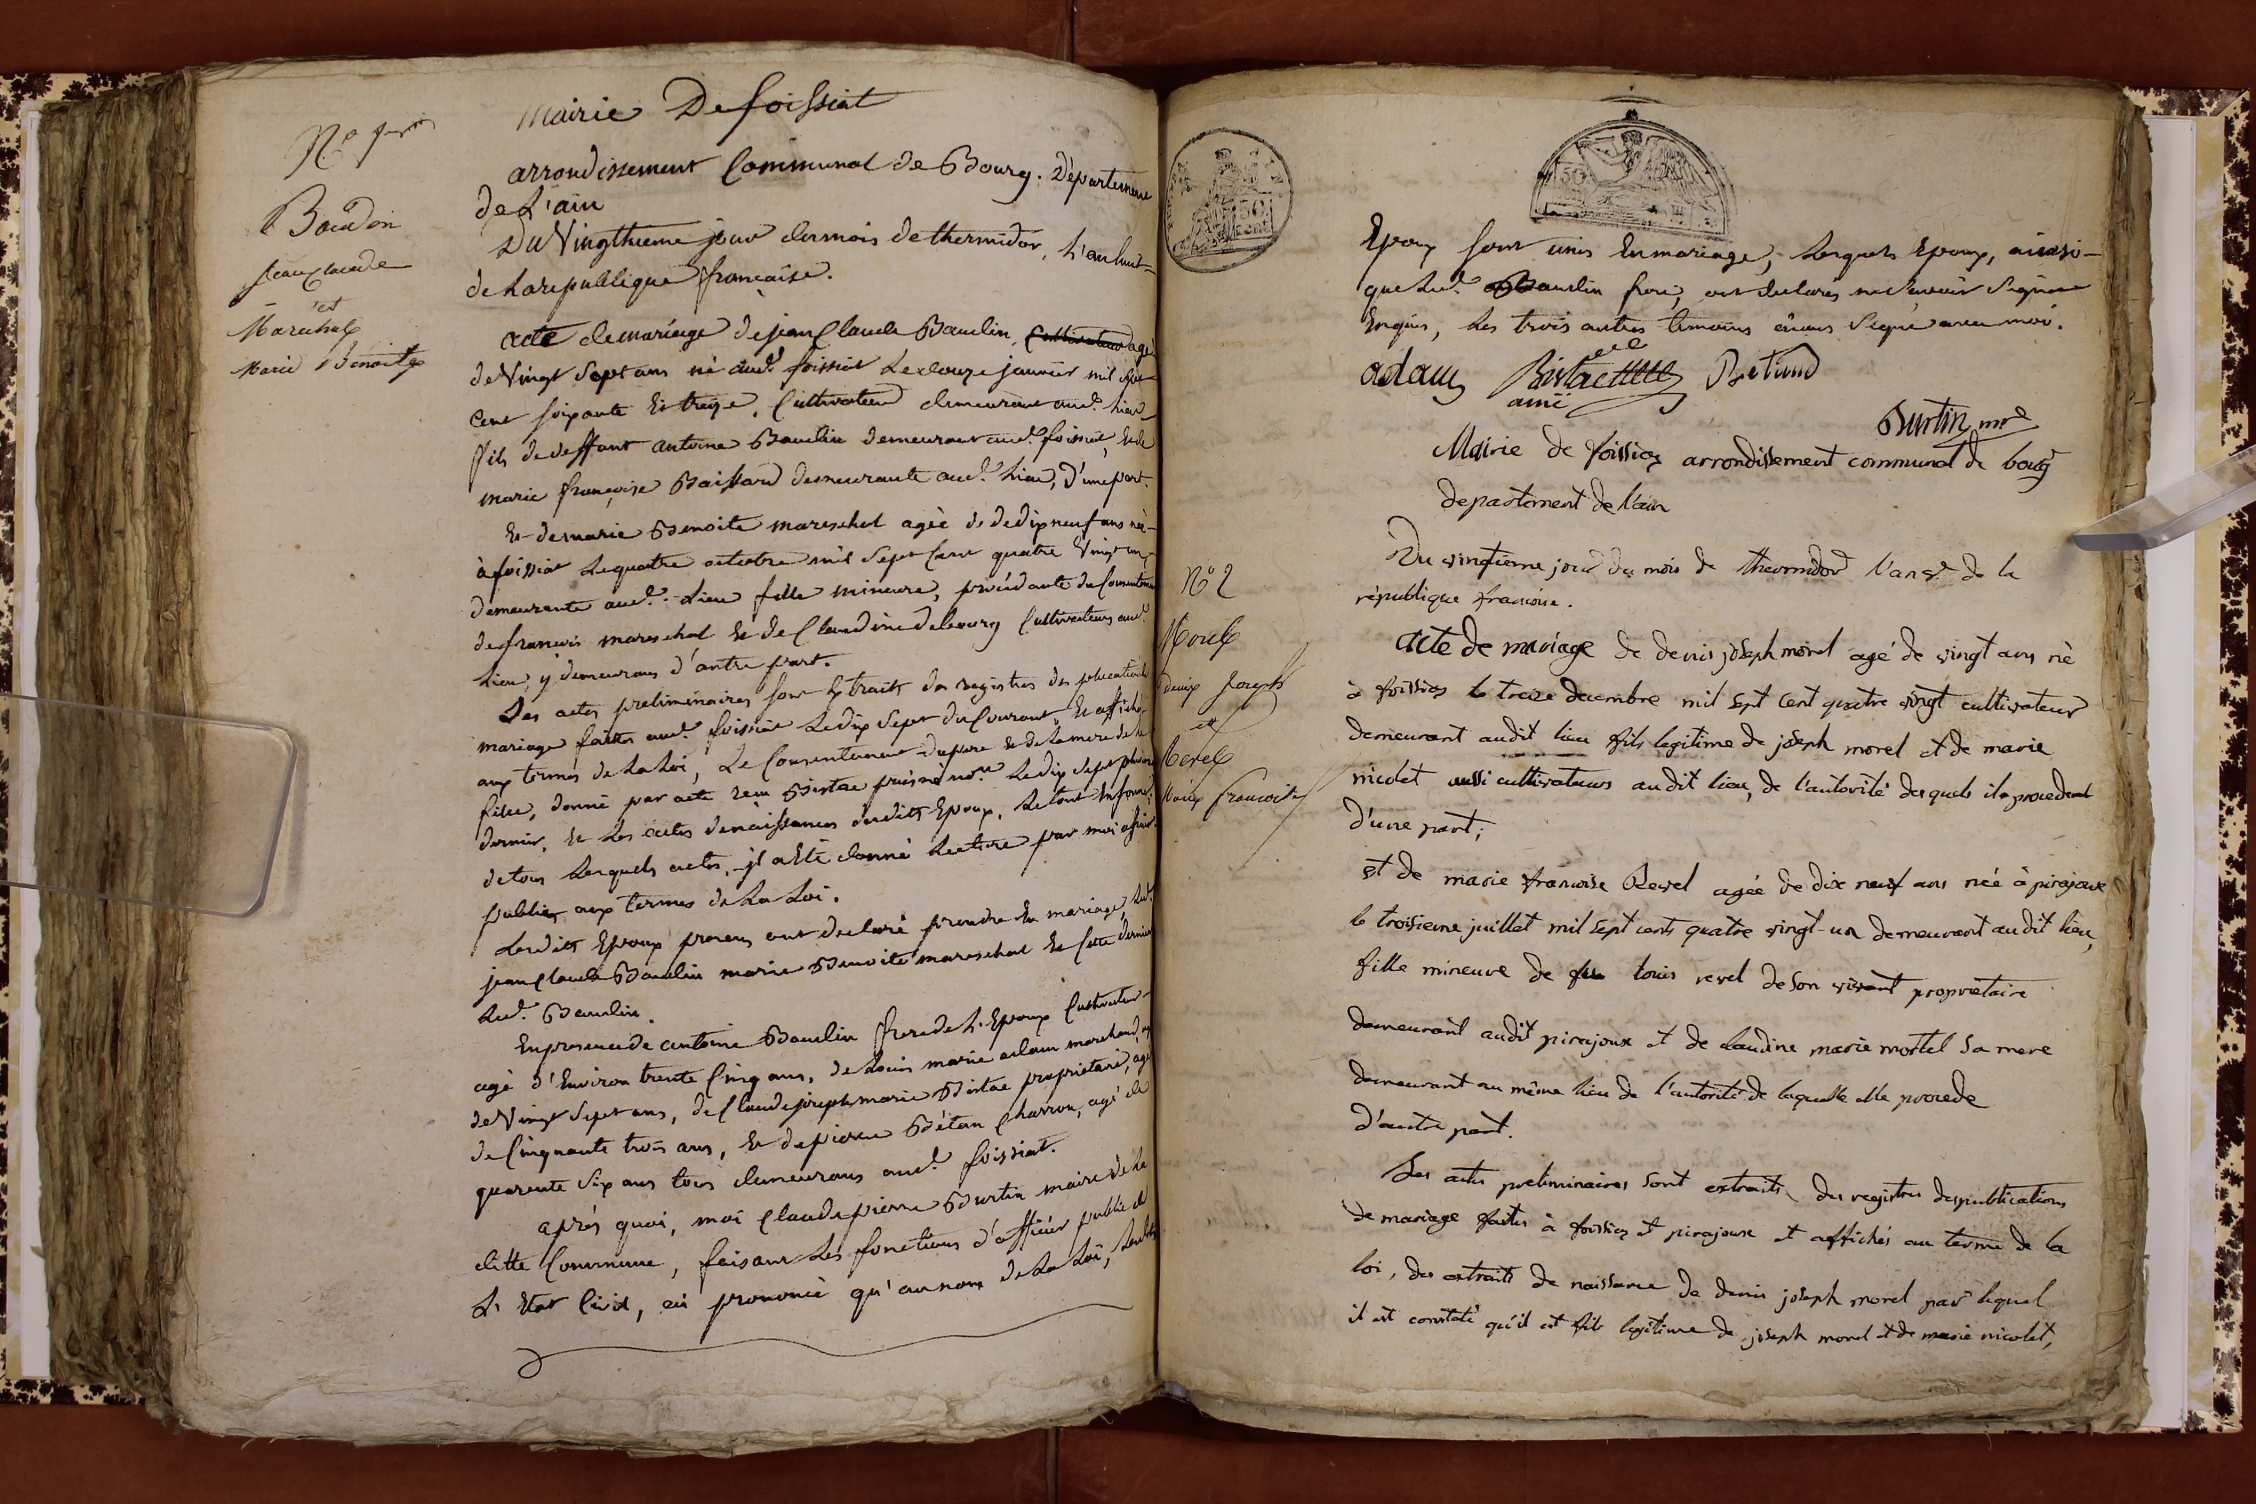 Mairie De foissiat
N.o 1er
arrondissement Communal de Bourg. Departement
de L'ain
Du Vingthieme jour du mois de thermidor, L'an huit
de La republique française.
Baudin
Jean Claude
et
Marechal
Marie Benoite
acte de mariage de jean Claude Baudin, Cultivateur agé
de Vingt Sept ans né aud.t foissiat Le douze janvier mil Sept
Cent soixante et treize, Cultivateur demeurant aud.t Lieu
fils de deffunt antoine Baudin demeurant aud.t foissiat, et de
marie françoise Baissard demeurante aud.t Lieu, d'une part.
Et de marie Benoite mareschal agée de dedix neuf ans née
à foissiat Le quatre octobre mil Sept Cent quatre Vingt un
demeurante aud.t Lieu fille mineure, procédante du Consentement
de francois mareschal et de Claudine debourg Cultivateurs aud.t
Lieu, y demeurans d'autre part.
Les actes preliminaires sont Extraits des registres des publications de
mariage faittes aud.t foissiat Le dix Sept du Courant, et affichés
aux termes de La Loi, Le Consentement du pere et de La mere de La
fille, donné par acte recu Bistac puisné no.re Le dix Sept
dernier, et Les actes de naissances desdits Epoux, Le tout En forme;
de tous Lesquels actes, il a Eté donné Lecture par moi officier
public aux termes de La Loi.
Lesdits Epoux presens ont declaré prendre En mariage, Led.t
jean Claude Baudin marie Benoite mareschal et Cette derniere
Led.t Baudin.
En presence de antoine Baudin frere de L'Epoux Cultivateur
agé d'Environ trente Cinq ans, de Louis marie adam marchand, agé
de Vingt Sept ans, de Claude joseph marie Bistac proprietaire, agé
de Cinquante trois ans, et de pierre Bétan Charron, agé de
quarente Six ans tous demeurans aud.t foissiat.
après quoi, moi Claude pierre Burtin maire de La
ditte Commune, faisant Les fonctions d'officier public de
L'Etat Civil, ai prononcé qu'au nom de La Loi, Lesdits
Epoux sont unis En mariage, Lesquels Epoux, ainsi
que Led.t Baudin frere, ont declarés ne Savoir Signer
Enquis, Les trois autres temoins ayans Signé avec moi.
adam Bistac ainé Betand
Burtin m.re
Mairie de foissiaz arrondissement communal de bourg
departement de l'ain
Du vingtieme jour du mois de thermidor l'an 8.e de la
république francoise.
N.o 2
Morel
Denis Joseph
et
Revel
Marie francoise
acte de mariage de denis joseph morel agé de vingt ans né
à foissiaz le treize decembre mil sept cent quatre vingt cultivateur
demeurant audit lieu fils legitime de joseph morel et de marie
nicolet aussi cultivateurs audit lieu, de l'autorité desquels il procedent
d'une part;
et de marie francoise Revel agée de dix neuf ans née à pirajoux
le troisieme juillet mil sept cents quatre vingt-un demeurant audit lieu,
fille mineure de feu louis revel de son vivant proprietaire
demeurant audit pirajoux et de claudine marie mortel sa mere
demeurant au même lieu de l'autorité de laquelle elle procede
d'autre part.
Les actes preliminaires sont extraits des registres des publications
de mariage faites à foissiaz et pirajoux et affichés au terme de la
loi, des extraits de naissance de denis joseph morel par lequel
il est constaté qu'il est fils legitime de joseph morel et de marie nicolet,